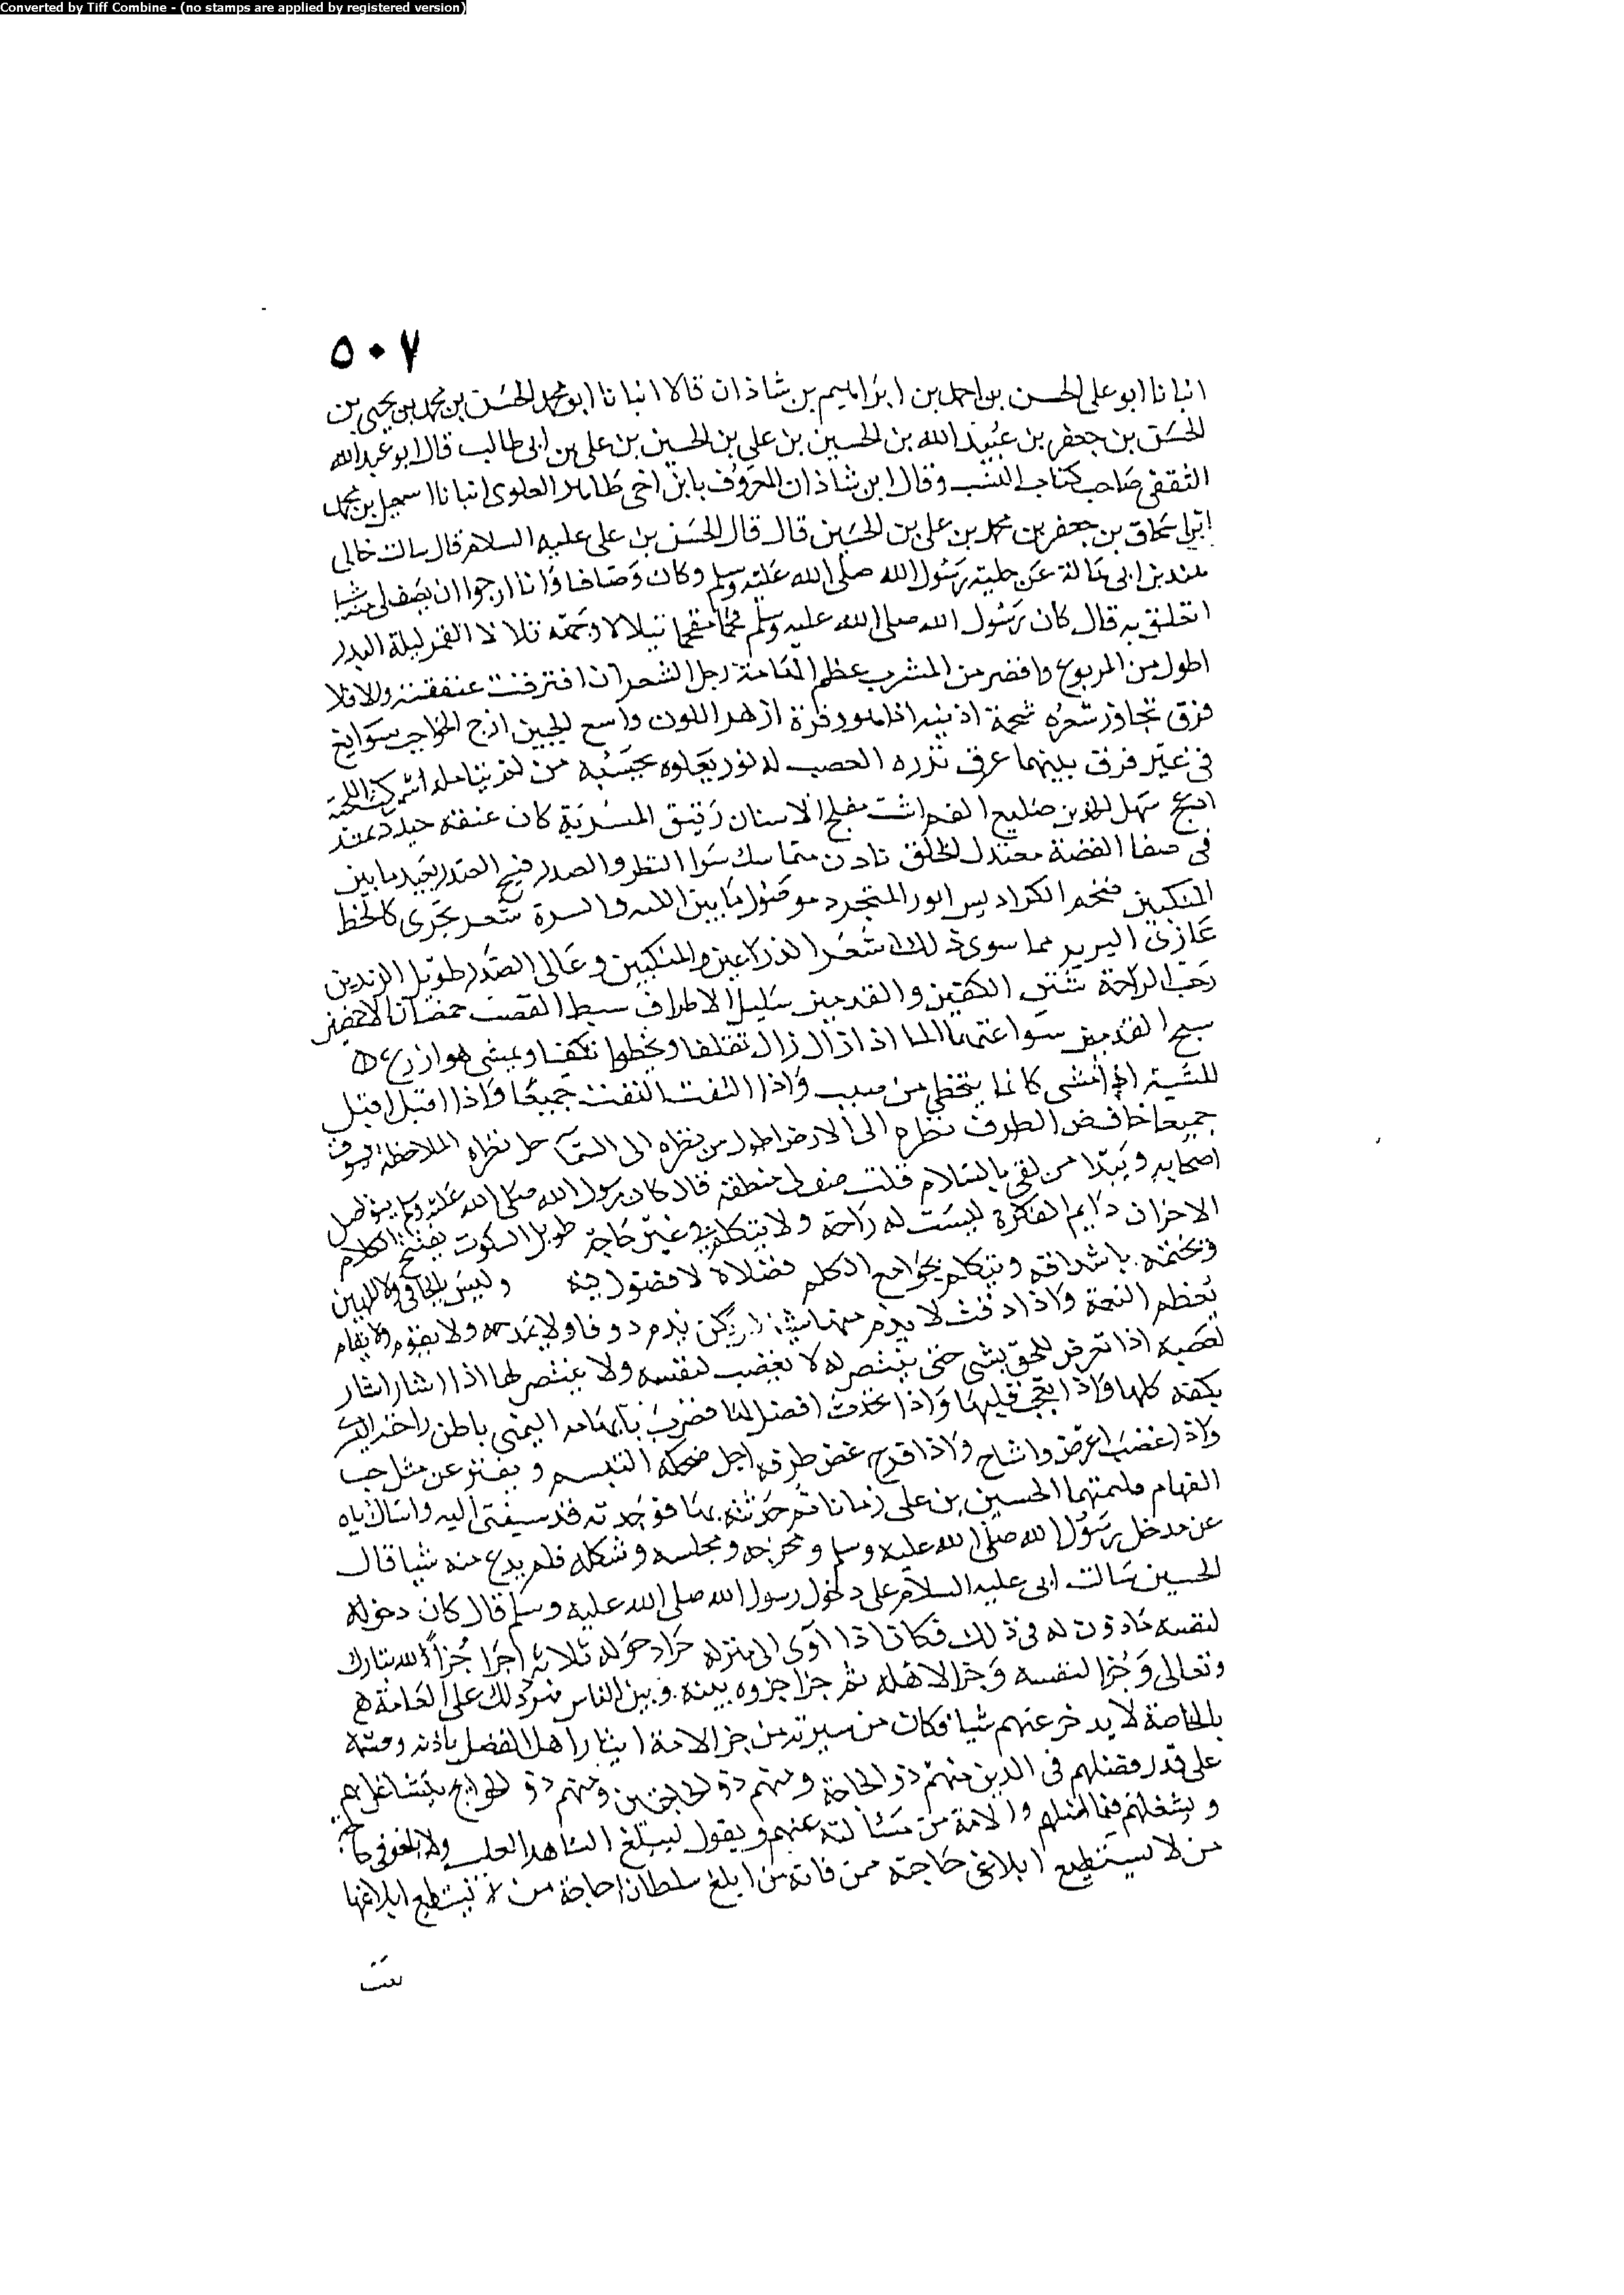 Converted by Tiff Combine - (no stamps are applied by registered version)
٥٠٧
انبانا ابو على الحسن بن احمد بن ابراهيم بن شاذان قالا انبانا ابو محمد الحسن بن محمد بن يحيى بن
الحسن بن جعفر بن عبيد الله بن الحسين بن على بن الحسين بن على بن ابى طالب قال ابو عبد الله
الثقفى صاحب كتاب النسب وقال ابن شاذان المعروف بابن اخى طاهر العلوى انبانا اسمعيل بن محمد
اسحاق بن جعفر بن محمد بن على بن الحسين قال قال الحسن بن على عليه السلام قال سالت خالى
هند بن ابى هالة عن حلية رسول الله صلى الله عليه وسلم وكان وصافا وانا ارجوا ان يصف لى منه شيا
اتعلق به قال كان رسول الله صلى الله عليه وسلم فخما مفخما يتلالا وجهه تلالا القمر ليلة البدر
اطول من المربوع واقصر من المشرب عظم الهامة رجل الشعر ان افترقت عنفقته والا فلا
فرق تجاوز شعره شحمة اذنيه اذا هو وفرة ازهر اللون واسع الجبين ازج الحواجب سوابغ
فى غير فرق بينهما عرق تدره الغضب له نور يعلوه يحسبه من لم يتامله اشم كث اللحية
ادعج سهل الخدين ضليع الفم اشنب مفلج الاسنان دقيق المسربة كان عنقه جيد دمية
فى صفا الفضة معتدل الخلق بادن متماسك سوا البطن والصدر فسيح الصدر بعيد ما بين
المنكبين ضخم الكراديس انور المتجرد موصول ما بين اللبه والسرة شعر يجرى كالخط
عارى اليدين مما سوى ذلك اشعر الذراعين والمنكبين وعالى الصدر طويل الزندين
رحب الراحة شثن الكفين والقدمين سايل الاطراف سبط القصب خمصان الاخمصين
مسيح القدمين ينبوا عنهما الما اذا زال زال تقلعا ويخطوا تكفيا ويمشى هونا ذريع
المشية اذا مشى كانما ينحط من صبب واذا التفت التفت جميعا واذا اقبل اقبل
جميعا خافض الطرف نظره الى الارض اطول من نظره الى السما جل نظره الملاحظة يسوق
اصحابه ويبدا من لقى بالسلام قلت صف لى منطقه قال كان رسول الله صلى الله عليه وسلم متواصل
الاحزان دايم الفكرة ليست له راحة ولا يتكلم فى غير حاجة طويل السكوت يفتتح الكلام
ويختمه باشداقه ويتكلم بجوامع الكلم فضلا لا فضول فيه وليس بالجافى ولا المهين
يعظم النعمة واذا دقت لا يذم منها شيئا لم يكن يذم دواقا ولا يمدحه ولا يقوم ولا يقام
لغضبه اذا تعرض للحق بشى حتى ينتصر له لا يغضب لنفسه ولا ينتصر لها اذا اشار اشار
بكفه كلها واذا تعجب قلبها واذا تحدث اتصل بها فضرب بابهامه اليمنى باطن راحته اليسرى
واذا غضب اعرض واشاح واذا فرح غض طرفه جل ضحكه التبسم ويفتر عن مثل حب
الغمام فكتمتها الحسين بن على زمانا ثم حدثته بها فوجدته قد سبقنى اليه وسال اباه
عن مدخل رسول الله صلى الله عليه وسلم ومخرجه ومجلسه وشكله فلم يدع منه شيا قال
الحسين سالت ابى عليه السلام على دخول رسول الله صلى الله عليه وسلم قال كان دخوله
لنفسه ماذون له فى ذلك فكان اذا آوى الى منزله جزا دخوله ثلاثة اجزا جزأ لله تبارك
وتعالى وجزا لنفسه وجزا لاهله ثم جزا جزوه بينه وبين الناس فيرد ذلك على العامة
بالخاصة لا يدخر عنهم شيا وكان من سيرته من جز الامة ايثار اهل الفضل باذنه وقسمه
على قدر فضلهم فى الدين منهم ذو الحاجة ومنهم ذو الحاجتين ومنهم ذو الحوايج يتشاغل بهم
ويشغلهم فيما اصلحهم والامة من مسألته عنهم ويقول ليبلغ الشاهد الغايب وابلغونى حاجة
من لا يستطيع ابلاغى حاجته ممن فانه من ابلغ سلطانا حاجة من لا يستطيع ابلاغها